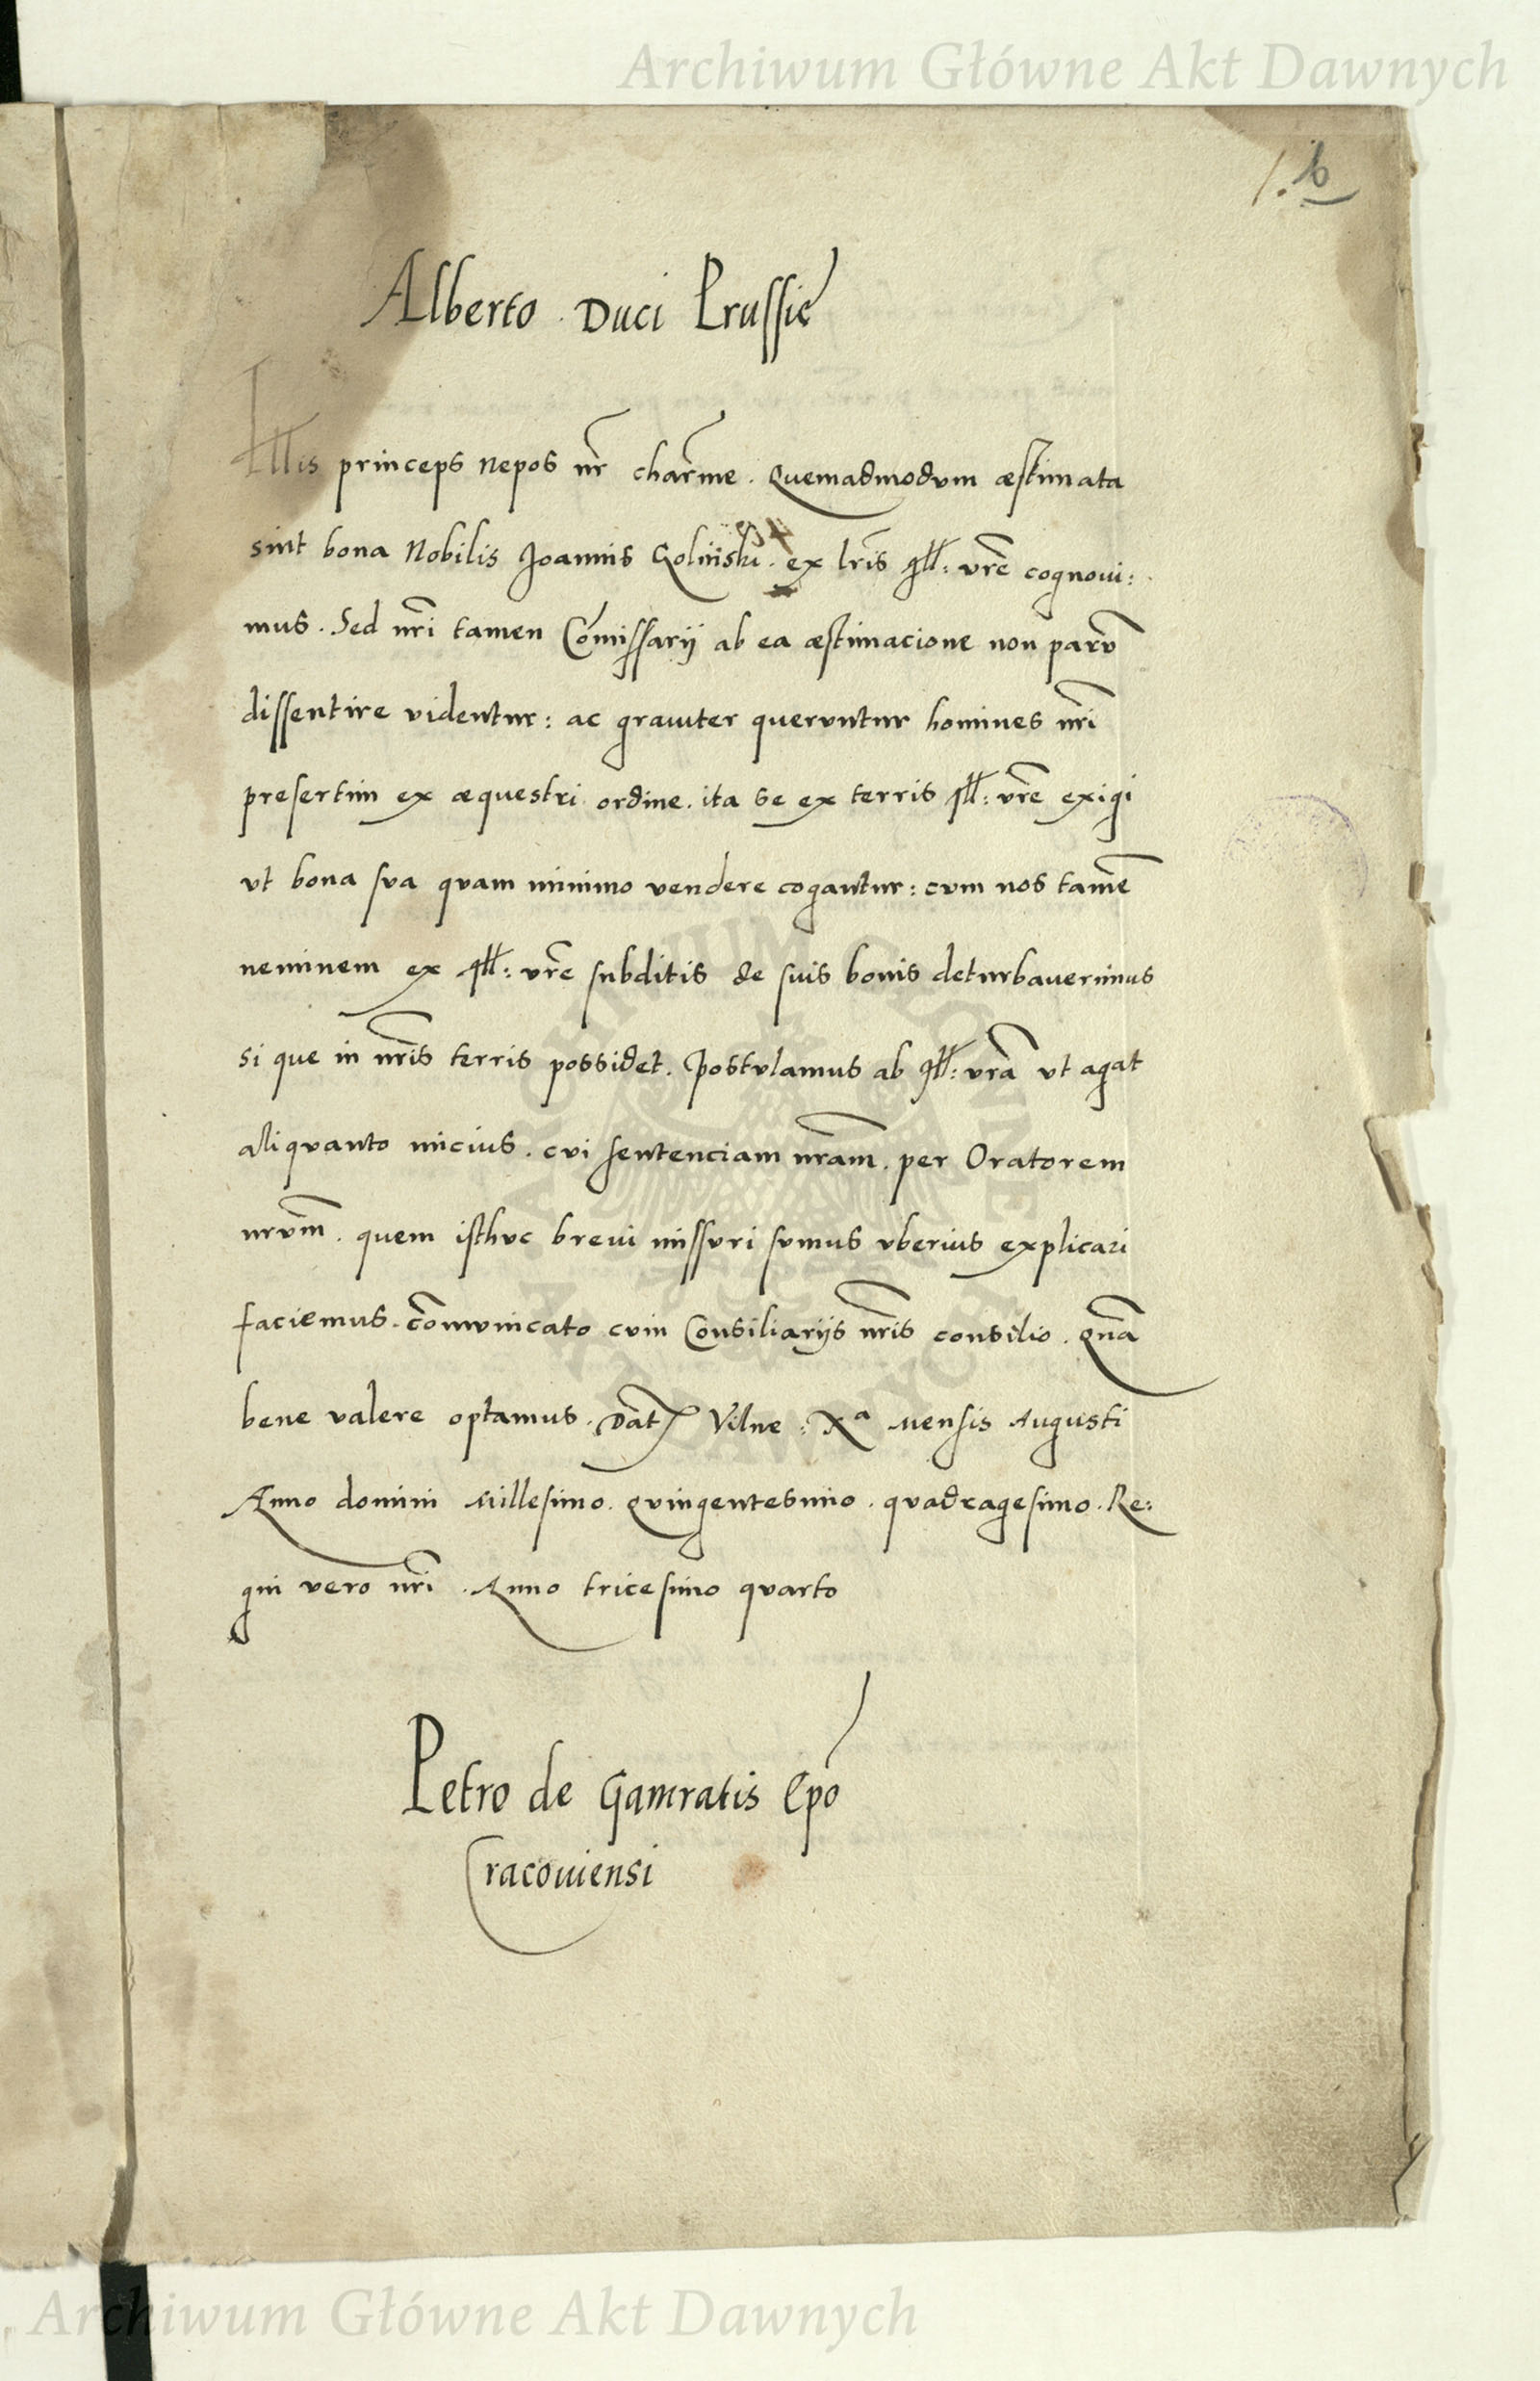 Archiwum Główne Akt Dawnych
1. b
Alberto Duci Prussie
Illis princeps nepos nr̃ charme. Quemadmodvm æstimata
sint bona Nobilis Joannis Goliński. ex lris Ill: vrẽ cognoui:
mus. Sed nrĩ tamen Cõmissarij ab ea æstimacione non parũ
dissentire videntur: ac grauiter quervntur homines nrĩ
presertim ex æquestri ordine. ita se ex terris Ill: vrẽ exigi
vt bona sva qvam minimo vendere cogantur: cvm nos tamẽ
neminem ex Ill: vrẽ subditis de suis bonis deturbauerimus
si que in nrĩs terris possidet. Postvlamus ab Ill: vrã vt agat
aliqvanto micivs. cvi sentenciam nrãm. per Oratorem
nrvm̃. quem isthvc breui missvri svmus vberivs explicari
faciemus. cõmvnicato cvm Consiliarijs nrĩs consilio. Qnã
bene valere optamus. Dãt Vilne: Xª mensis Augusti
Anno domini Millesimo. Qvingentesimo. qvadragesimo. Re:
gni vero nrĩ. Anno tricesimo qvarto
Petro de Gamratis Epõ
Cracouiensi
ARCHIWUM GŁÓWNE
AKT DAWNYCH
Archiwum Główne Akt Dawnych